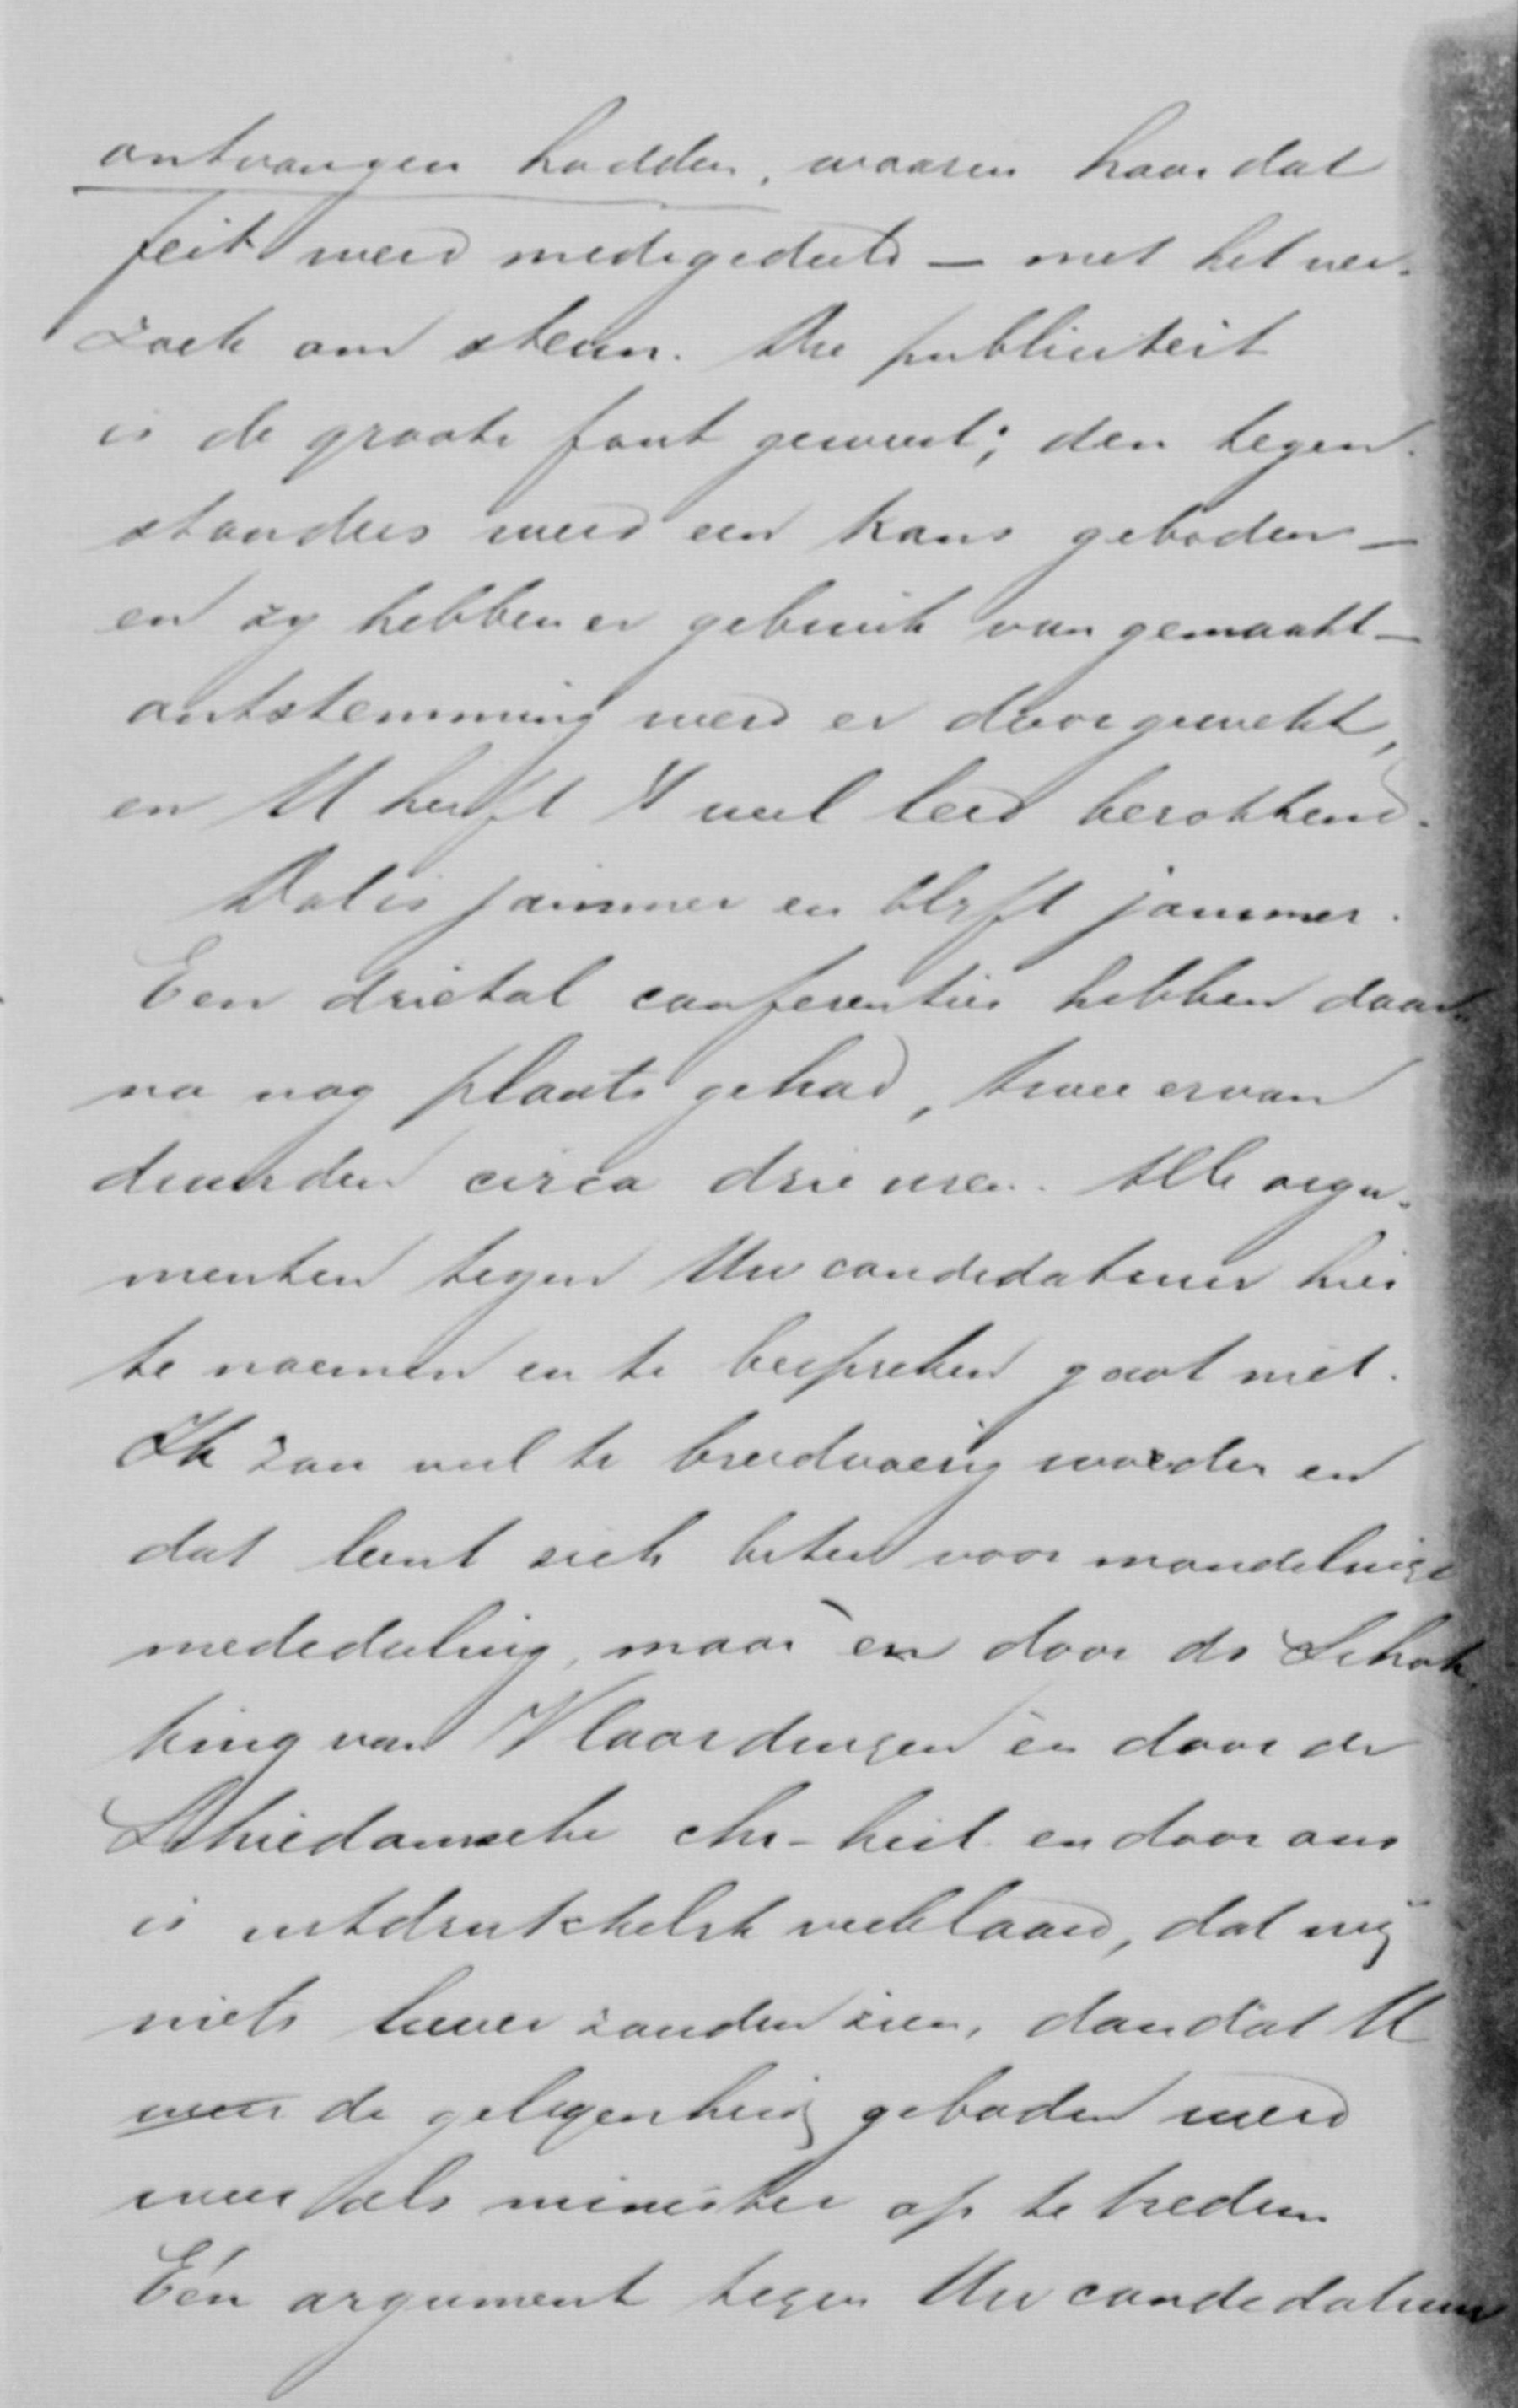 ontvangen hadden, waarin haar dat
feit werd medegedeeld – met het ver-
zoek om steun. Die publiciteit
is de groote fout geweest; den tegen-
standers werd een kans geboden –
en zy hebben er gebruik van gemaakt –
ontstemming werd er door gewekt,
en U heeft 't veel leed berokkend.
Dat is jammer en blyft jammer.
Een drietal conferenties hebben daar-
na nog plaats gehad, twee ervan
duurden circa drie uren. Alle argu-
menten tegen Uw candidatuur hier
te noemen en te bespreken gaat niet.
Ik zou veel te breedvoerig worden en
dat leent zich beter voor mondelinge
mededeeling, maar èn door ds Schok-
king van Vlaardingen èn door de
Schiedamsche chr-hist. en door ons
is uitdrukkelyk verklaard, dat wij
niets liever zouden zien, dan dat U
weer de gelegenheid geboden werd
weer als minister op te treden.
Eén argument tegen Uw candidatuur